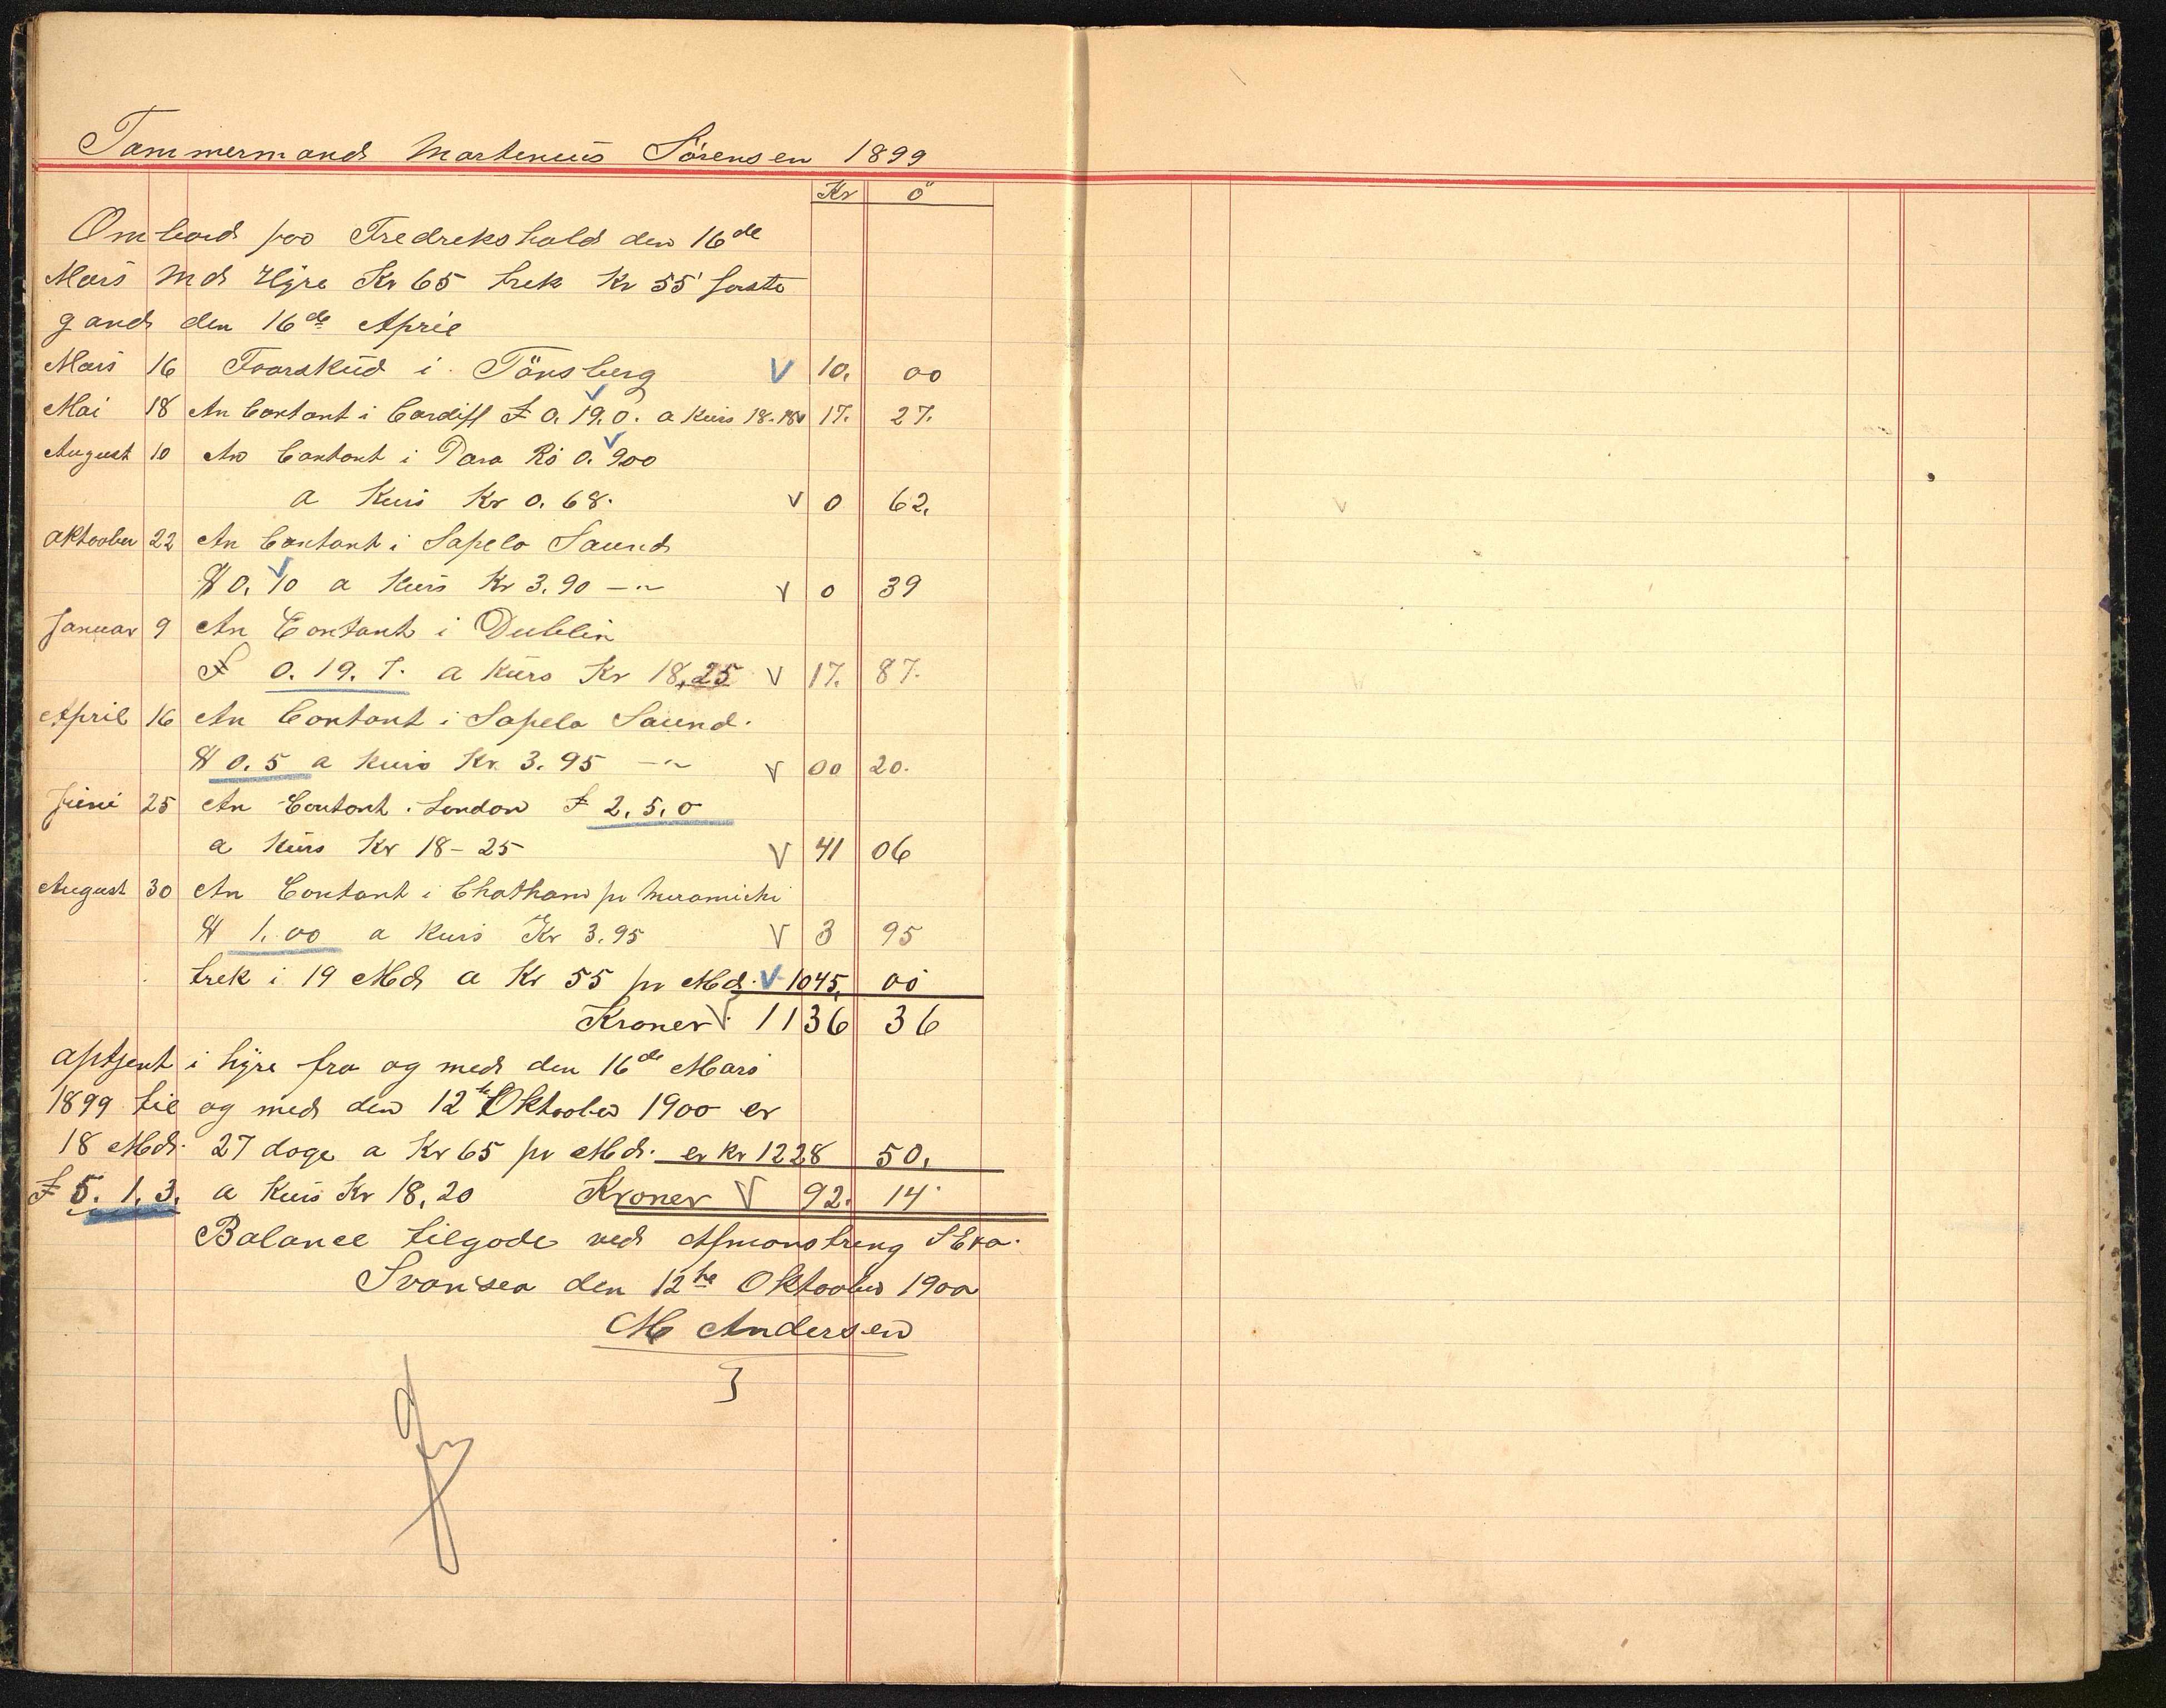 Tammermand Martinius Sörensen 1899
Kr ö
Ombord paa Fredrekshald den 16de
Mars Md Hyre Kr 65 trek Kr 55 förste
gand den 16de April
Mars 16 Foorskud i Tönsberg V 10. 00
Mai 18 An Contant i Cardiff £ 0. 19. 0. a Kurs 18.18 V 17. 27.
August 10 An Contant i Para Rs 0. 900
a Kurs Kr 0. 68. V 0 62.
Oktoober 22 An Contant i Sapelo Saund
$ 0. 10 a Kurs Kr 3.90 — V 0 39
Januar 9 An Contant i Dublin
£ 0. 19. 7. a Kurs Kr 18,25 V 17. 87.
April 16 An Contant i Sapelo Saund.
$ 0. 5 a Kurs Kr. 3.95 — V 00 20.
Juni 25 An Contont . London £ 2. 5. 0
a Kurs Kr 18-25 V 41 06
August 30 An Contant i Chatham pr Miramichi
$ 1. 00 a Kurs Kr 3.95 V 3 95
trek i 19 Md a Kr 55 pr Md. V 1045. 00
Kroner V 1136 36
aftjent i hyre fra og med den 16de Mars
1899 til og med den 12te Oktoober 1900 er
18 Md. 27 dage a Kr 65 pr Md. er Kr 1228 50.
£ 5. 1. 3. a Kurs Kr 18,20 Kroner V 92. 14
Balance tilgode ved Afmönstring
Svansea den 12te Oktoober 1900
M Andersen